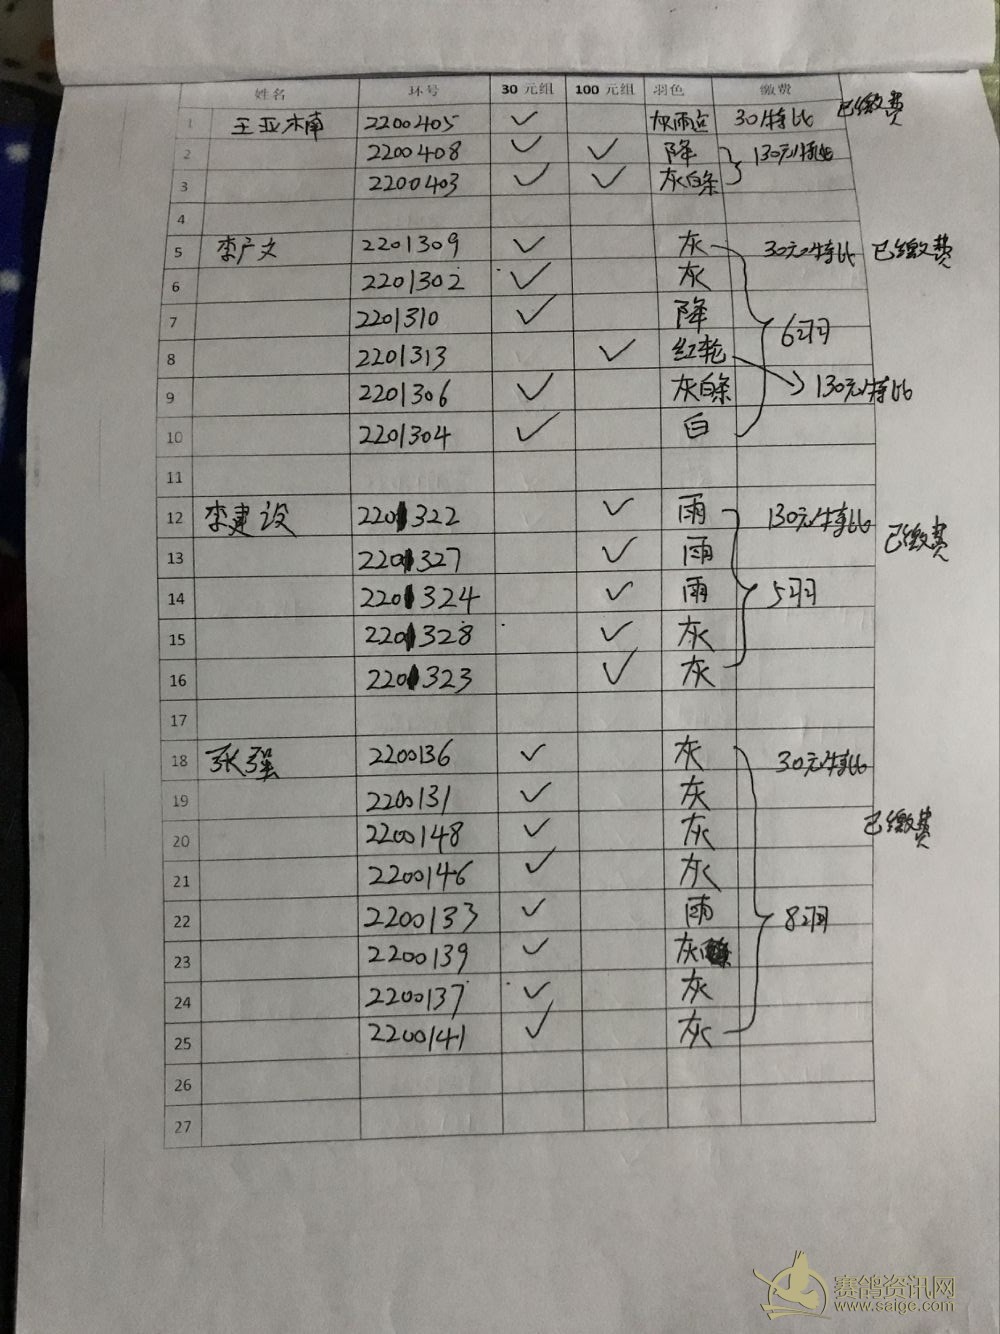 姓名 环号 30元组 100元组 羽色 缴费
1 王亚木南 2200405 ✓ 灰雨点 30特比 已缴费
2 2200408 ✓ ✓ 降 130元特比
3 2200403 ✓ ✓ 灰白条
4
5 李广文 2201309 ✓ 灰 30元特比 已缴费
6 2201302 ✓ 灰
7 2201310 ✓ 降 6羽
8 2201313 ✓ 红轮
9 2201306 ✓ 灰白条 130元特比
10 2201304 ✓ 白
11
12 李建设 2201322 ✓ 雨 130元特比 已缴费
13 2201327 ✓ 雨
14 2201324 ✓ 雨 5羽
15 2201328 ✓ 灰
16 2201323 ✓ 灰
17
18 张强 2200136 ✓ 灰 30元特比
19 2200131 ✓ 灰
20 2200148 ✓ 灰 已缴费
21 2200146 ✓ 灰
22 2200133 ✓ 雨 8羽
23 2200139 ✓ 灰
24 2200137 ✓ 灰
25 2200141 ✓ 灰
26
27
赛鸽资讯网
www.saige.com